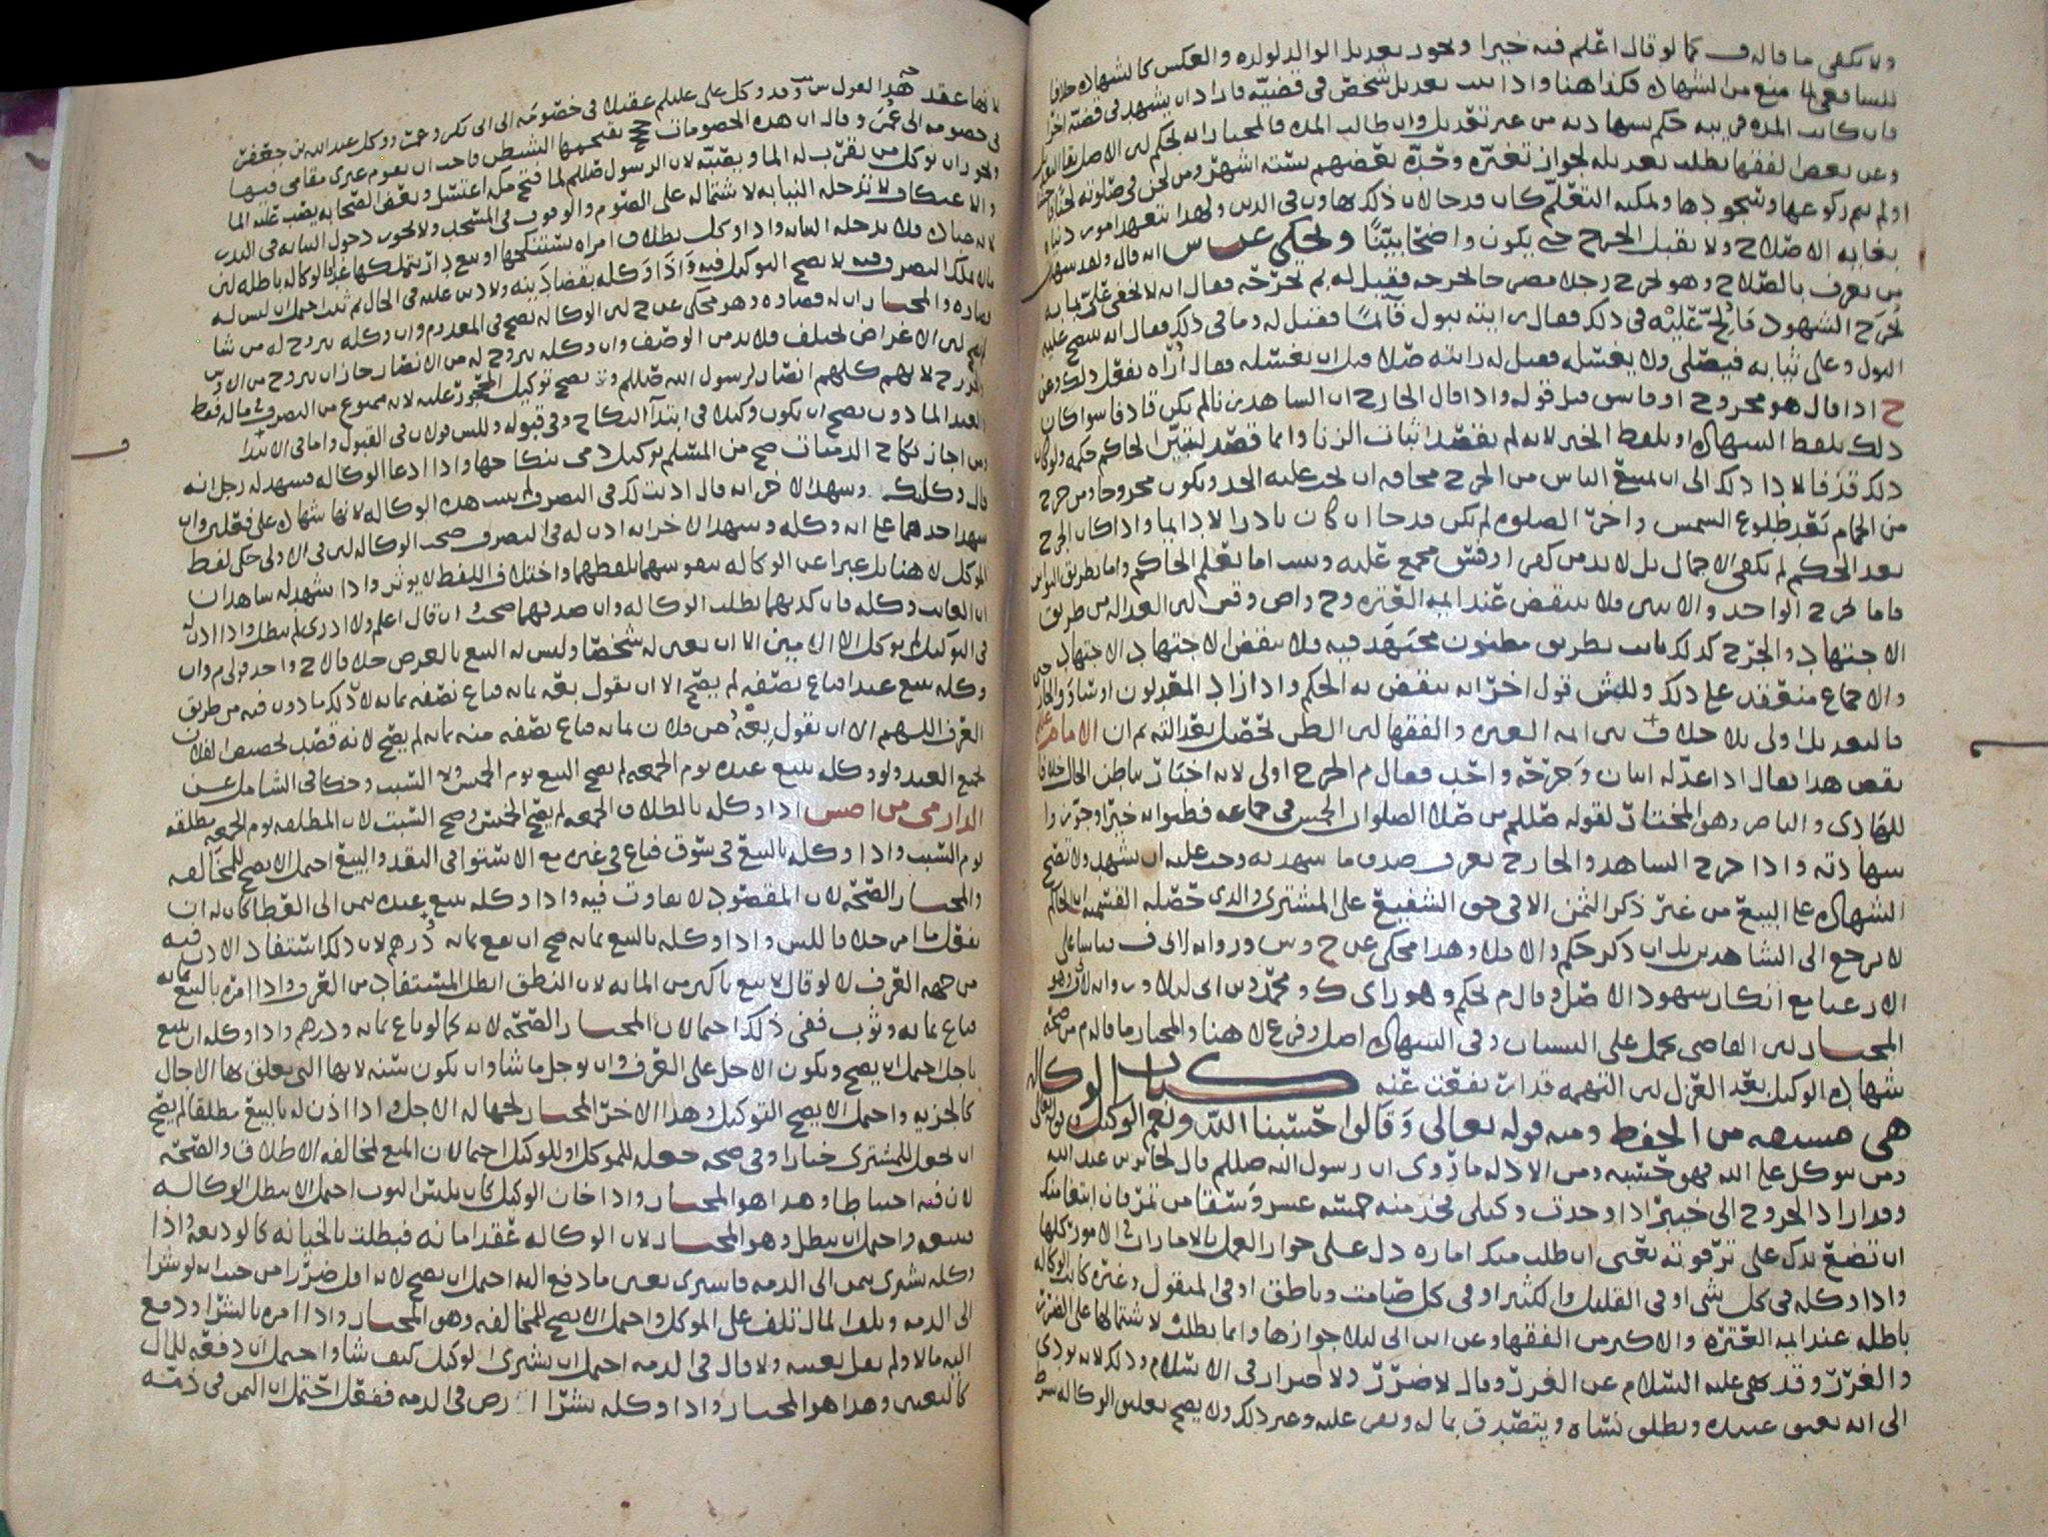 ولا يكفي ما قاله ف كما لو قال اعلم فيه خيرا ويجوز تعديل الوالد لولده والعكس كالشهادة خلافا
للشافعي لما منع من الشهادة فكذا هنا واذا ثبت تعديل شخص في قضية فاراد ان يشهد في قضية اخرى
فان كانت المدة قريبة حكم بشهادته من غير تعديل وان طالت المدة فالمختار انه يحكم لان الاصل بقا التعديل
وعن بعض الفقها يطلب تعديله لجواز تغيره وحده بعضهم بستة اشهر ومن لحن في صلوته لحنا
او لم يتم ركوعها وسجودها ويمكنه التعلم كان قدحا لان ذلك تهاون في الدين ولهذا يتعهد امور دنياه
بغاية الاصلاح ولا يقبل الجرح حتى يكون واضحا بينا ويحكى عن ش انه قال ولقد شهدت
من يعرف بالصلاح وهو يجرح رجلا مصرحا بجرحه فقيل له بم تجرحه فقال انه لا يخفى علي بما به
يجرح الشهود فالح عليه في ذلك فقال رايته يبول قائما فقيل له وما في ذلك فقال انه ينضح عليه
البول وعلى ثيابه فيصلي ولا يغسله فقيل له رايته صلا قبل ان يغسله فقال أراه يفعل ذلك وعن
ح اذا قال هو مجروح او فاسق قبل قوله واذا قال الجارح ان الشاهد زنا لم يكن قاذفا سوا كان
ذلك بلفظ الشهادة او بلفظ الخبر لانه لم يقصد اثبات الزنا وانما قصد لتبين الحاكم حكمه ولو كان
ذلك قذفا لادا ذلك الى ان يمتنع الناس من الجرح مخافة ان يجب عليه الحد ويكون مجروحا ومن خرج
من الحمام بعد طلوع الشمس واخر الصلوة لم يكن قدحا ان كان نادرا لا دايما واذا كان الجرح
بعد الحكم لم يكف الاجمال بل لا بد من كفر او فسق مجمع عليه ويثبت اما بعلم الحاكم واما بطريق التواتر
فاما بجرح الواحد والاثنين فلا ينقض عند ايمة العترة وح واص وقش لان العدالة من طريق
الاجتهاد والجرح كذلك ثابت بطريق مظنون مجتهد فيه فلا ينقض الاجتهاد الاجتهاد
والاجماع منعقد على ذلك وللش قول اخر انه ينقض به الحكم واذا زاد المعدلون او ساوو الجارحين
فالتعديل اولى بلا خلاف بين ايمة العترة والفقها لان الظن تحصل بعدالته ثم ان الامام
نقض هذا فقال اذا عدله اثنان وجرحه واحد فقال م الجرح اولى لانه اخبار بباطن الحال خلافا
للهادي والناصر وهو المختار لقوله صللم من صلا الصلوات الخمس في جماعة فظنوا به خيرا وجوزوا
شهادته واذا جرح الشاهد والجارح يعرف صدق ما شهد به وجب عليه ان يشهد ولا تصح
الشهادة على البيع من غير ذكر الثمن الا في حق الشفيع على المشتري والذي حصله القسمية ان الحاكم
لا يرجع الى الشاهدين بل ان ذكر حكم والا فلا وهذا محكي عن ح وش ورواية لابي ف قياسا على
الارعيا مع انكار شهود الاصل وقال م يحكم وهو راي ك ومحمد وابن ابي ليلى وب وابه لاف وهو
المختار لان القاضي يحمل على النسيان وفي الشهادة اصل وفرع لا هنا والمختار ما قاله م من صحة
شهادة الوكيل بعد العزل لان التهمة قد ارتفعت عنه كتاب الوكالة
هي مشتقة من الحفظ ومنه قوله تعالى وقالوا حسبنا الله ونعم الوكيل
ومن يتوكل على الله فهو حسبه ومن الادلة ما روى ان رسول الله صللم قال لجابر بن عبد الله
وقد اراد الخروج الى خيبر اذا وجدت وكيلي فخذ منه خمسة عشر وسقا من تمر فان ابتغا منك
ان تضع يدك على ترقوته يعني ان طلب منك امارة دل على جواز العمل بالامارات في الامور كلها
واذا وكله في كل شي او في القليل والكثير او في كل صامت وناطق او في المنقول وغيره كانت الوكالة
باطلة عند ايمة العترة والاكثر من الفقها وعن ابن ابي ليلا جوازها وانما بطلت لاشتمالها على الضرر
والغرر وقد نهى عليه السلام عن الغرر وقال لا ضرر ولا ضرار في الاسلام وذلك لانه يودي
الى انه يعتق عبيده ويطلق نساه ويتصدق بماله ونفي عليه وغير ذلك ولا يصح تعليق الوكالة بشرط
لانها عقد هذا القول ش وقد وكل على عليلم عقيلا في خصومة الى ابي بكر وعمر ووكل عبد الله بن جعفر
في خصومة الى عثمن وقال ان هذه الخصومات يقتحمها الشيطان واحب ان يقوم غيري مقامي فيها
ويجوز ان يوكل من يقرب له الما ويصبه لان الرسول صللم لما فتح مكة اغتسل وبعض الصحابة يصب عليه الما
والاعتكاف لا تدخله النيابة لاشتماله على الصوم والوقوف في المسجد ولا يجوز دخول النيابة في النذر
لانه عبادة فلا تدخله النيابة واذا وكل بطلاق امراة يستنكحها او بيع دار يتملكها غدا فالوكالة باطلة لان
ما لا يملك التصرف فيه لا يصح التوكيل فيه واذا وكله بقضا دينه ولا دين عليه في الحال ثم ثبت احتمل ان ليس له
قضاوه والمختار ان له قضاوه وهو محكي عن ح لان الوكالة تصح في المعدوم وان وكله يزوج له من شا
لم يصح لان الاغراض تختلف فلا بد من الوصف وان وكله يزوج له من الانصار جاز ان يزوج من الاوس
والخزرج لانهم كلهم انصار لرسول الله صللم ولا يصح توكيل المحجور عليه لانه ممنوع من التصرف في ماله فقط
والعبد الماذون يصح ان يكون وكيلا في ابتدا النكاح وفي قبوله وللش قولان في القبول واما في الابتدا
ومن اجاز نكاح الذميات صح من المسلم توكيل ذمي بنكاحها واذا ادعا الوكالة فشهد له رجل انه
قال وكلتك وشهد الاخر انه قال اذنت لك في التصرف لم يثبت هذه الوكالة لانها شهادة على فعلين وان
شهد احدهما على انه وكله وشهد الاخر انه اذن له في التصرف صحت الوكالة لان في الاولى حكى لفظ
الموكل لا هنا بل عبرا عن الوكالة بلفظهما واختلاف اللفظ لا يوثر واذا شهد له شاهدان
ان الغايب وكله فان كذبهما بطلت الوكالة وان صدقهما صحت وان قال اعلم ولا ادري لم تبطل واذا اذن له
في التوكيل لم يوكل الا الامين الا ان يعين له شخصا وليس له البيع بالعرض خلافا لاح واحد قولي م وان
وكله ببيع عبد فباع نصفه لم يصح الا ان يقول بعه بمائة فباع نصفه بمائة لان ذلك ماذون فيه من طريق
العرف اللهم الا ان يقول بعه من فلان بمائة فباع نصفه منه بمائة لم يصح لانه قصد تخصيص الفلان
لجميع العبد ولو وكله ببيع عبده يوم الجمعة لم يصح البيع يوم الخميس ولا السبت وحكا في الشامل عن
الدارمي من اصش اذا وكله بالطلاق الجمعة لم يصح الخميس وصح السبت لان المطلقة يوم الجمعة مطلقة
يوم السبت واذا وكله بالبيع في سوق فباع في غيره مع الاستوا في النقد والبيع احتمل الا يصح للمخالفة
والمختار الصحة لان المقصود لا تفاوت فيه واذا وكله ببيع عبده بثمن الى العطا كان له ان
يفعل ما امر خلافا للش واذا وكله بالبيع بمائة صح ان يبيع بمائة درهم لان ذلك استفاد الاذن فيه
من جهة العرف لا لو قال لا تبع باكثر من المائة لان النطق ابطل المستفاد من العرف واذا امره بالبيع بمائة
فباع بمائة وثوب ففي ذلك احتمالان المختار الصحة لانه كما لو باع بمائة ودرهم واذا وكله ان يبيع
باجل احتمل ان يصح ويكون الاجل على العرف وان يوجل ما شا وان يكون سنة لانها التي يعلق بها الاجال
كالجزية واحتمل الا يصح التوكيل وهذا الاخر المختار لجهالة الاجل واذا اذن له بالبيع مطلقا لم يصح
ان يجعل للمشتري خيارا وفي صحة جعله للموكل او للوكيل احتمالان المنع لمخالفة الاطلاق والصحة
لان فيه احتياطا وهذا هو المختار واذا خان الوكيل كان يلبس الثوب احتمل الا تبطل الوكالة
ببيعه واحتمل ان تبطل وهو المختار لان الوكالة عقد امانة فبطلت بالخيانة كالوديعة واذا
وكله يشتري بثمن الى الذمة فاشترى بعين ما دفع اليه احتمل ان يصح لانه اقل ضررا من حيث انه لو شرا
الى الذمة وتلف المال تلف على الموكل واحتمل الا يصح للمخالفة وهو المختار واذا امره بالشرا ودفع
اليه مالا ولم يقل بعينه ولا قال في الذمة احتمل ان يشتري الوكيل كيف شا واحتمل ان دفعه للمال
كالتعيين وهذا هو المختار واذا وكله بشرا ارض في الذمة ففعل احتمل ان الثمن في ذمته